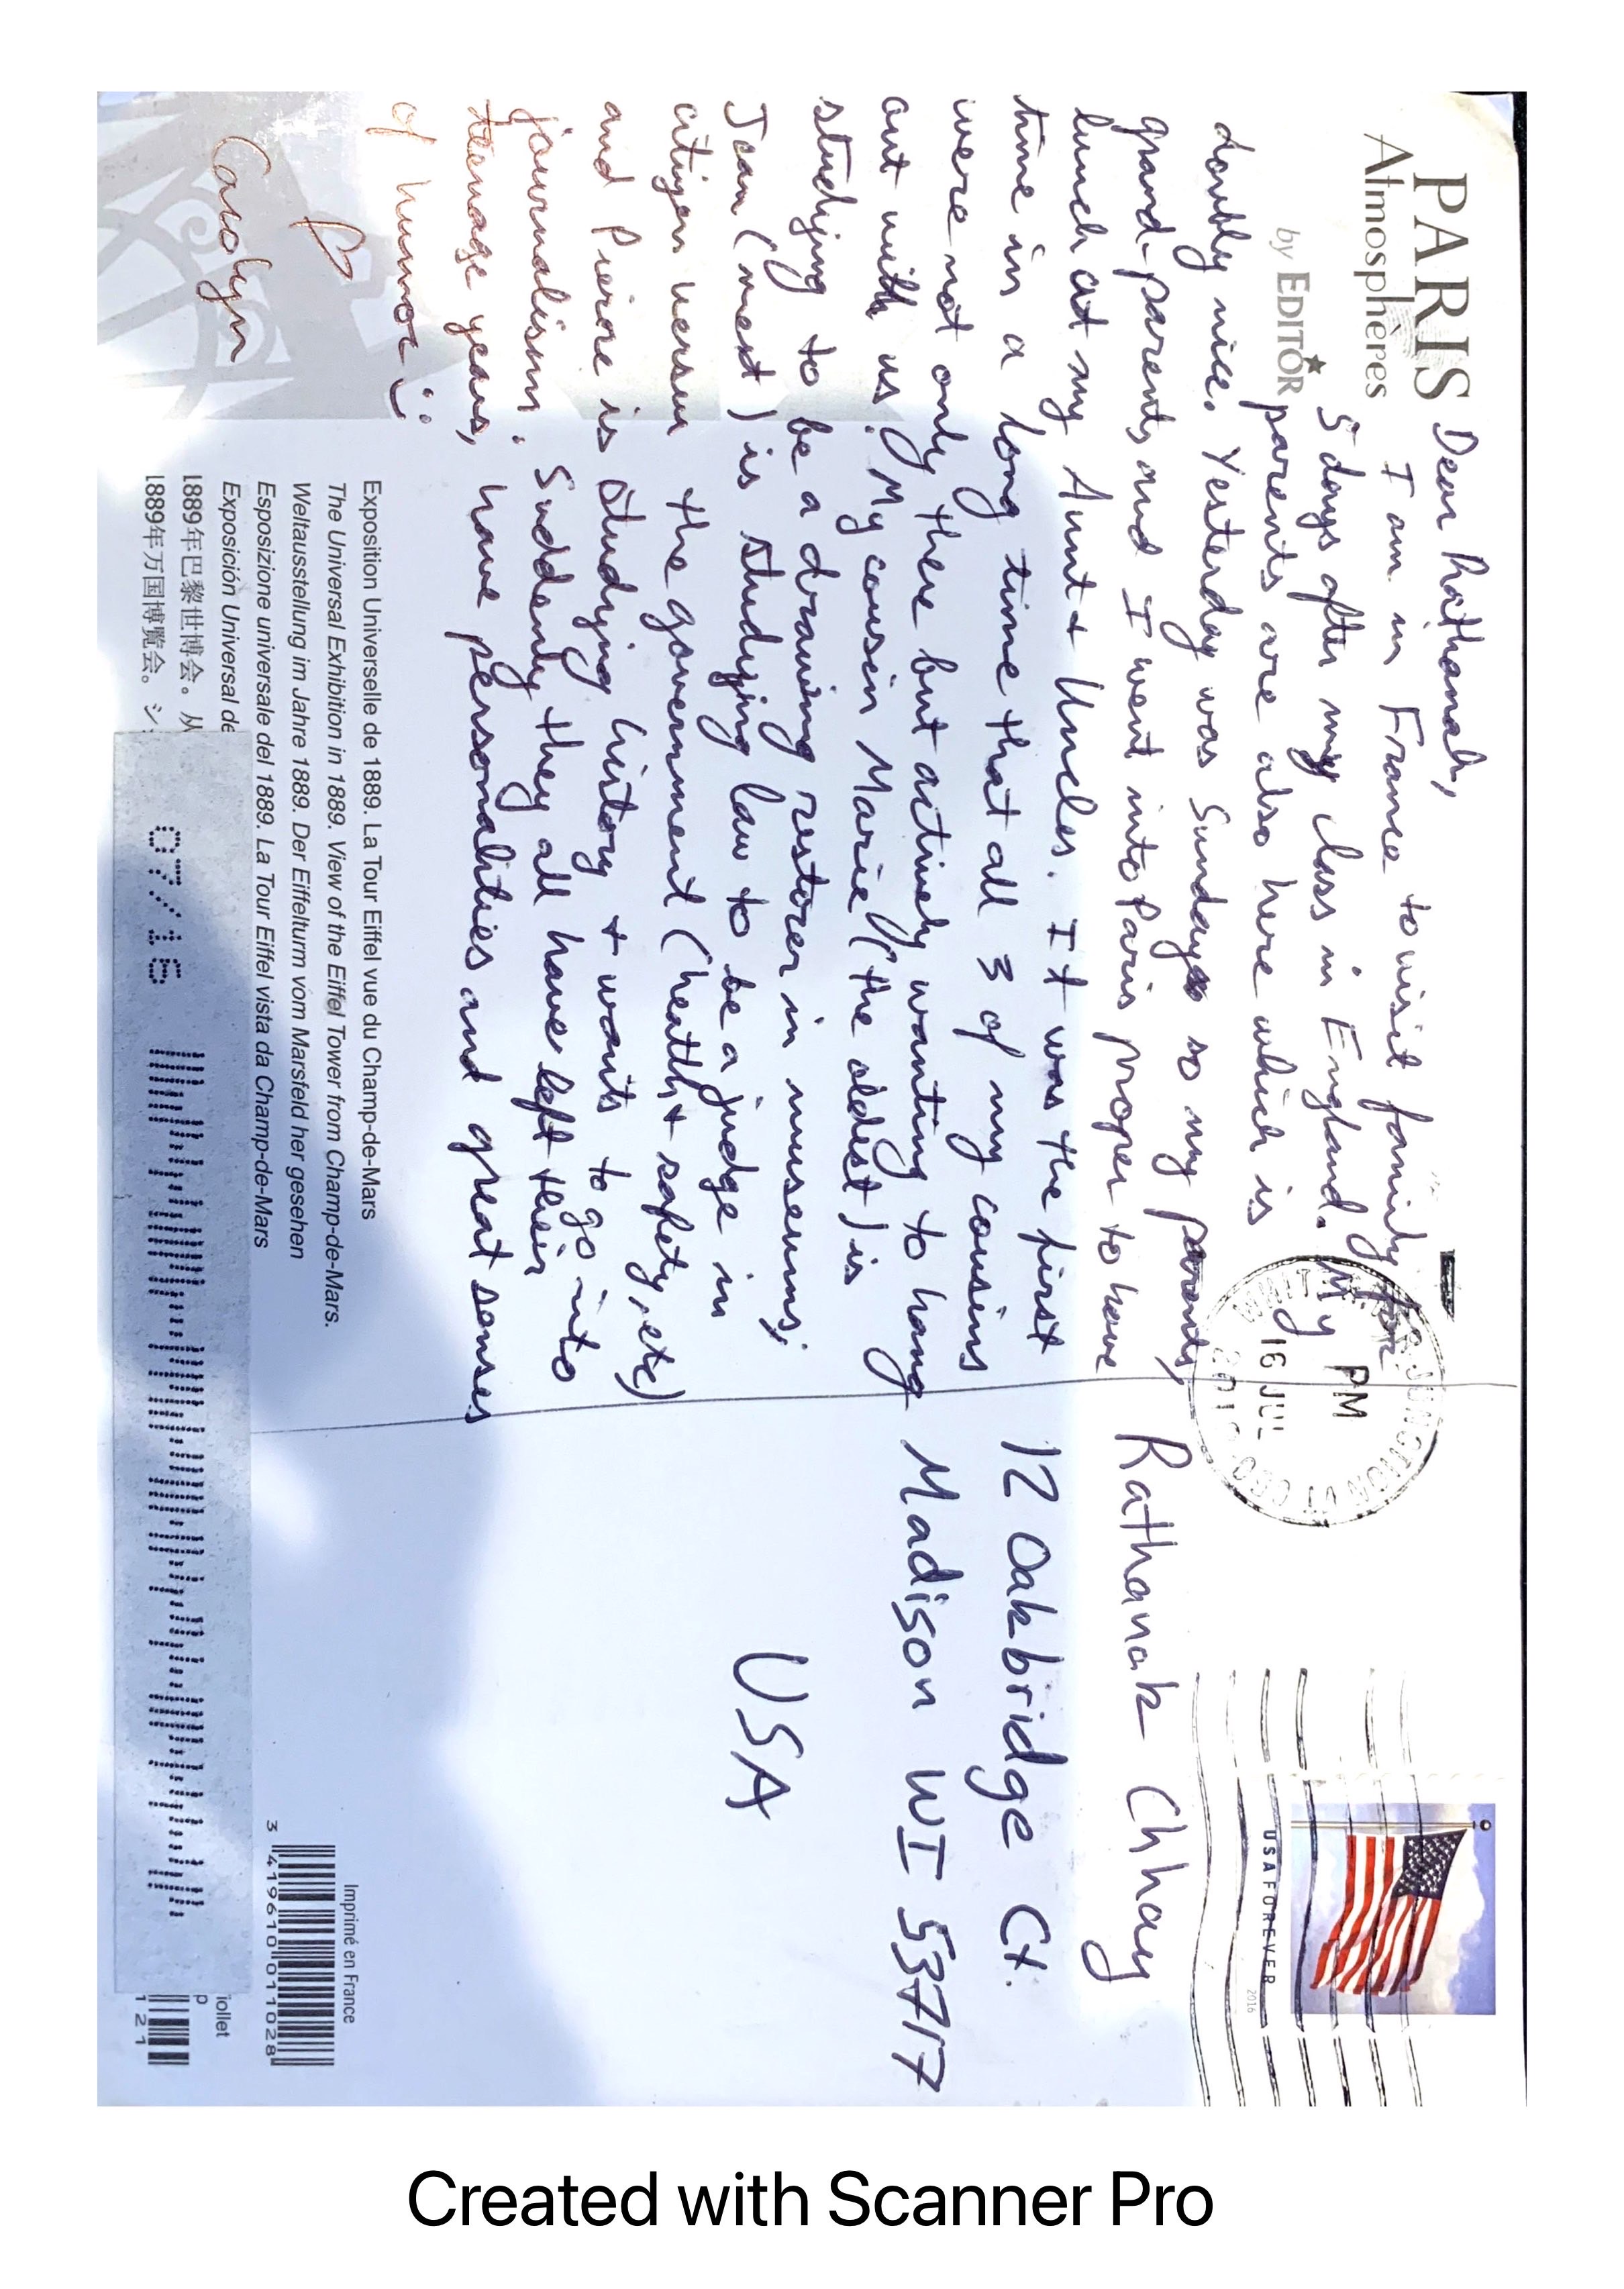 PARIS
Atmosphères
by EDITOR
Dear Rathanak,
I am in France to visit family for
5 days after my class in England. My
parents are also here which is
doubly nice. Yesterday was Sunday so my parents,
grand-parents and I went into Paris proper to have
lunch at my Aunt & Uncles. It was the first
time in a long time that all 3 of my cousins
were not only there but actively wanting to hang
out with us! My cousin Marie (the oldest) is
studying to be a drawing restorer in museums;
Jean (next) is studying law to be a judge in
citizen versus the government (health & safety, etc)
and Pierre is studying history & wants to go into
journalism. Suddenly they all have left their
teenage years, have personalities and great senses
of humor :)
Carolyn
PM
16 JUL
USA FOREVER
2016
Rathanak Chhay
12 Oakbridge Ct.
Madison WI 53717
USA
Exposition Universelle de 1889. La Tour Eiffel vue du Champ-de-Mars
The Universal Exhibition in 1889. View of the Eiffel Tower from Champ-de-Mars.
Weltausstellung im Jahre 1889. Der Eiffelturm vom Marsfeld her gesehen
Esposizione universale del 1889. La Tour Eiffel vista da Champ-de-Mars
Exposición Universal de
1889年巴黎世博会。从
1889年万国博覧会。シ
07/16
Imprimé en France
3 419610 011028
iollet
p
121
Created with Scanner Pro